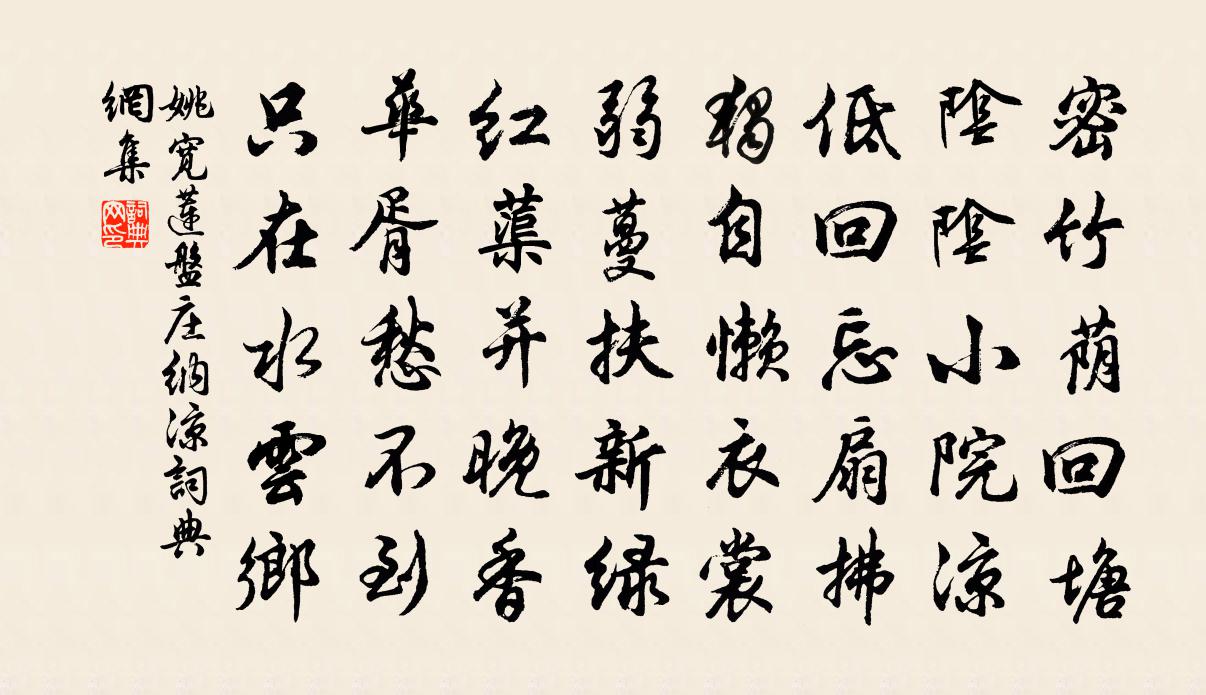 密竹荫回塘
陰陰小院凉
低回忘扇拂
独自懒衣裳
弱蔓扶新绿
红蕖并晚香
華胥愁不到
只在水雲鄉
姚寬蓮盤庄纳凉詞典
網集
詞典
网印